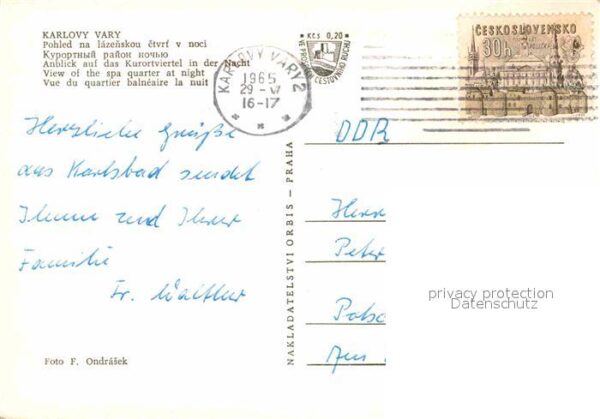 KARLOVY VARY
Pohled na lázeňskou čtvrť v noci
Курортный район ночью
Anblick auf das Kurortviertel in der Nacht
View of the spa quarter at night
Vue du quartier balnéaire la nuit
KARLOVY VARY 2
1965
29 - V
16-17
Kčs 0,20
VE PROSPĚCH CESTOVNÍHO RUCHU
ČESKOSLOVENSKO
30h
Herzliche Grüße
aus Karlsbad sendet
Ihnen und Ihrer
Familie
Fr. Walther
NAKLADATELSTVÍ ORBIS — PRAHA
DDR
Herr
Peter
Pots
privacy protection
Datenschutz
Foto F. Ondrášek